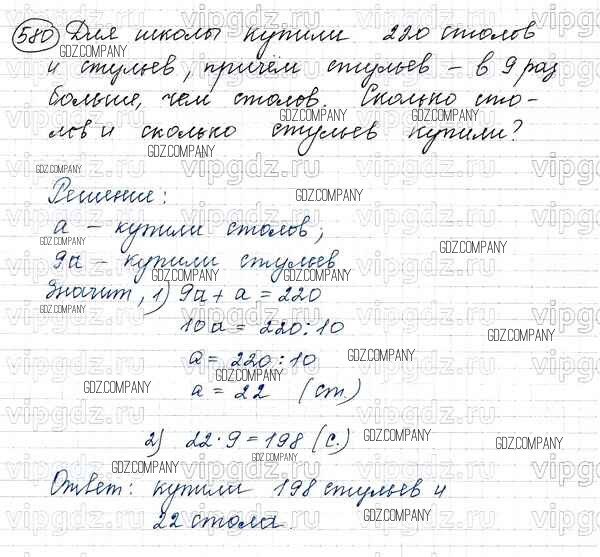 580 Для школы купили 220 столов
и стульев, причём стульев – в 9 раз
больше, чем столов. Сколько сто-
лов и сколько стульев купили?
Решение:
a – купили столов,
9a – купили стульев
Значит, 1) 9a + a = 220
10a = 220:10
a = 220:10
a = 22 (ст.)
2) 22·9 = 198 (с.)
Ответ: купили 198 стульев и
22 стола.